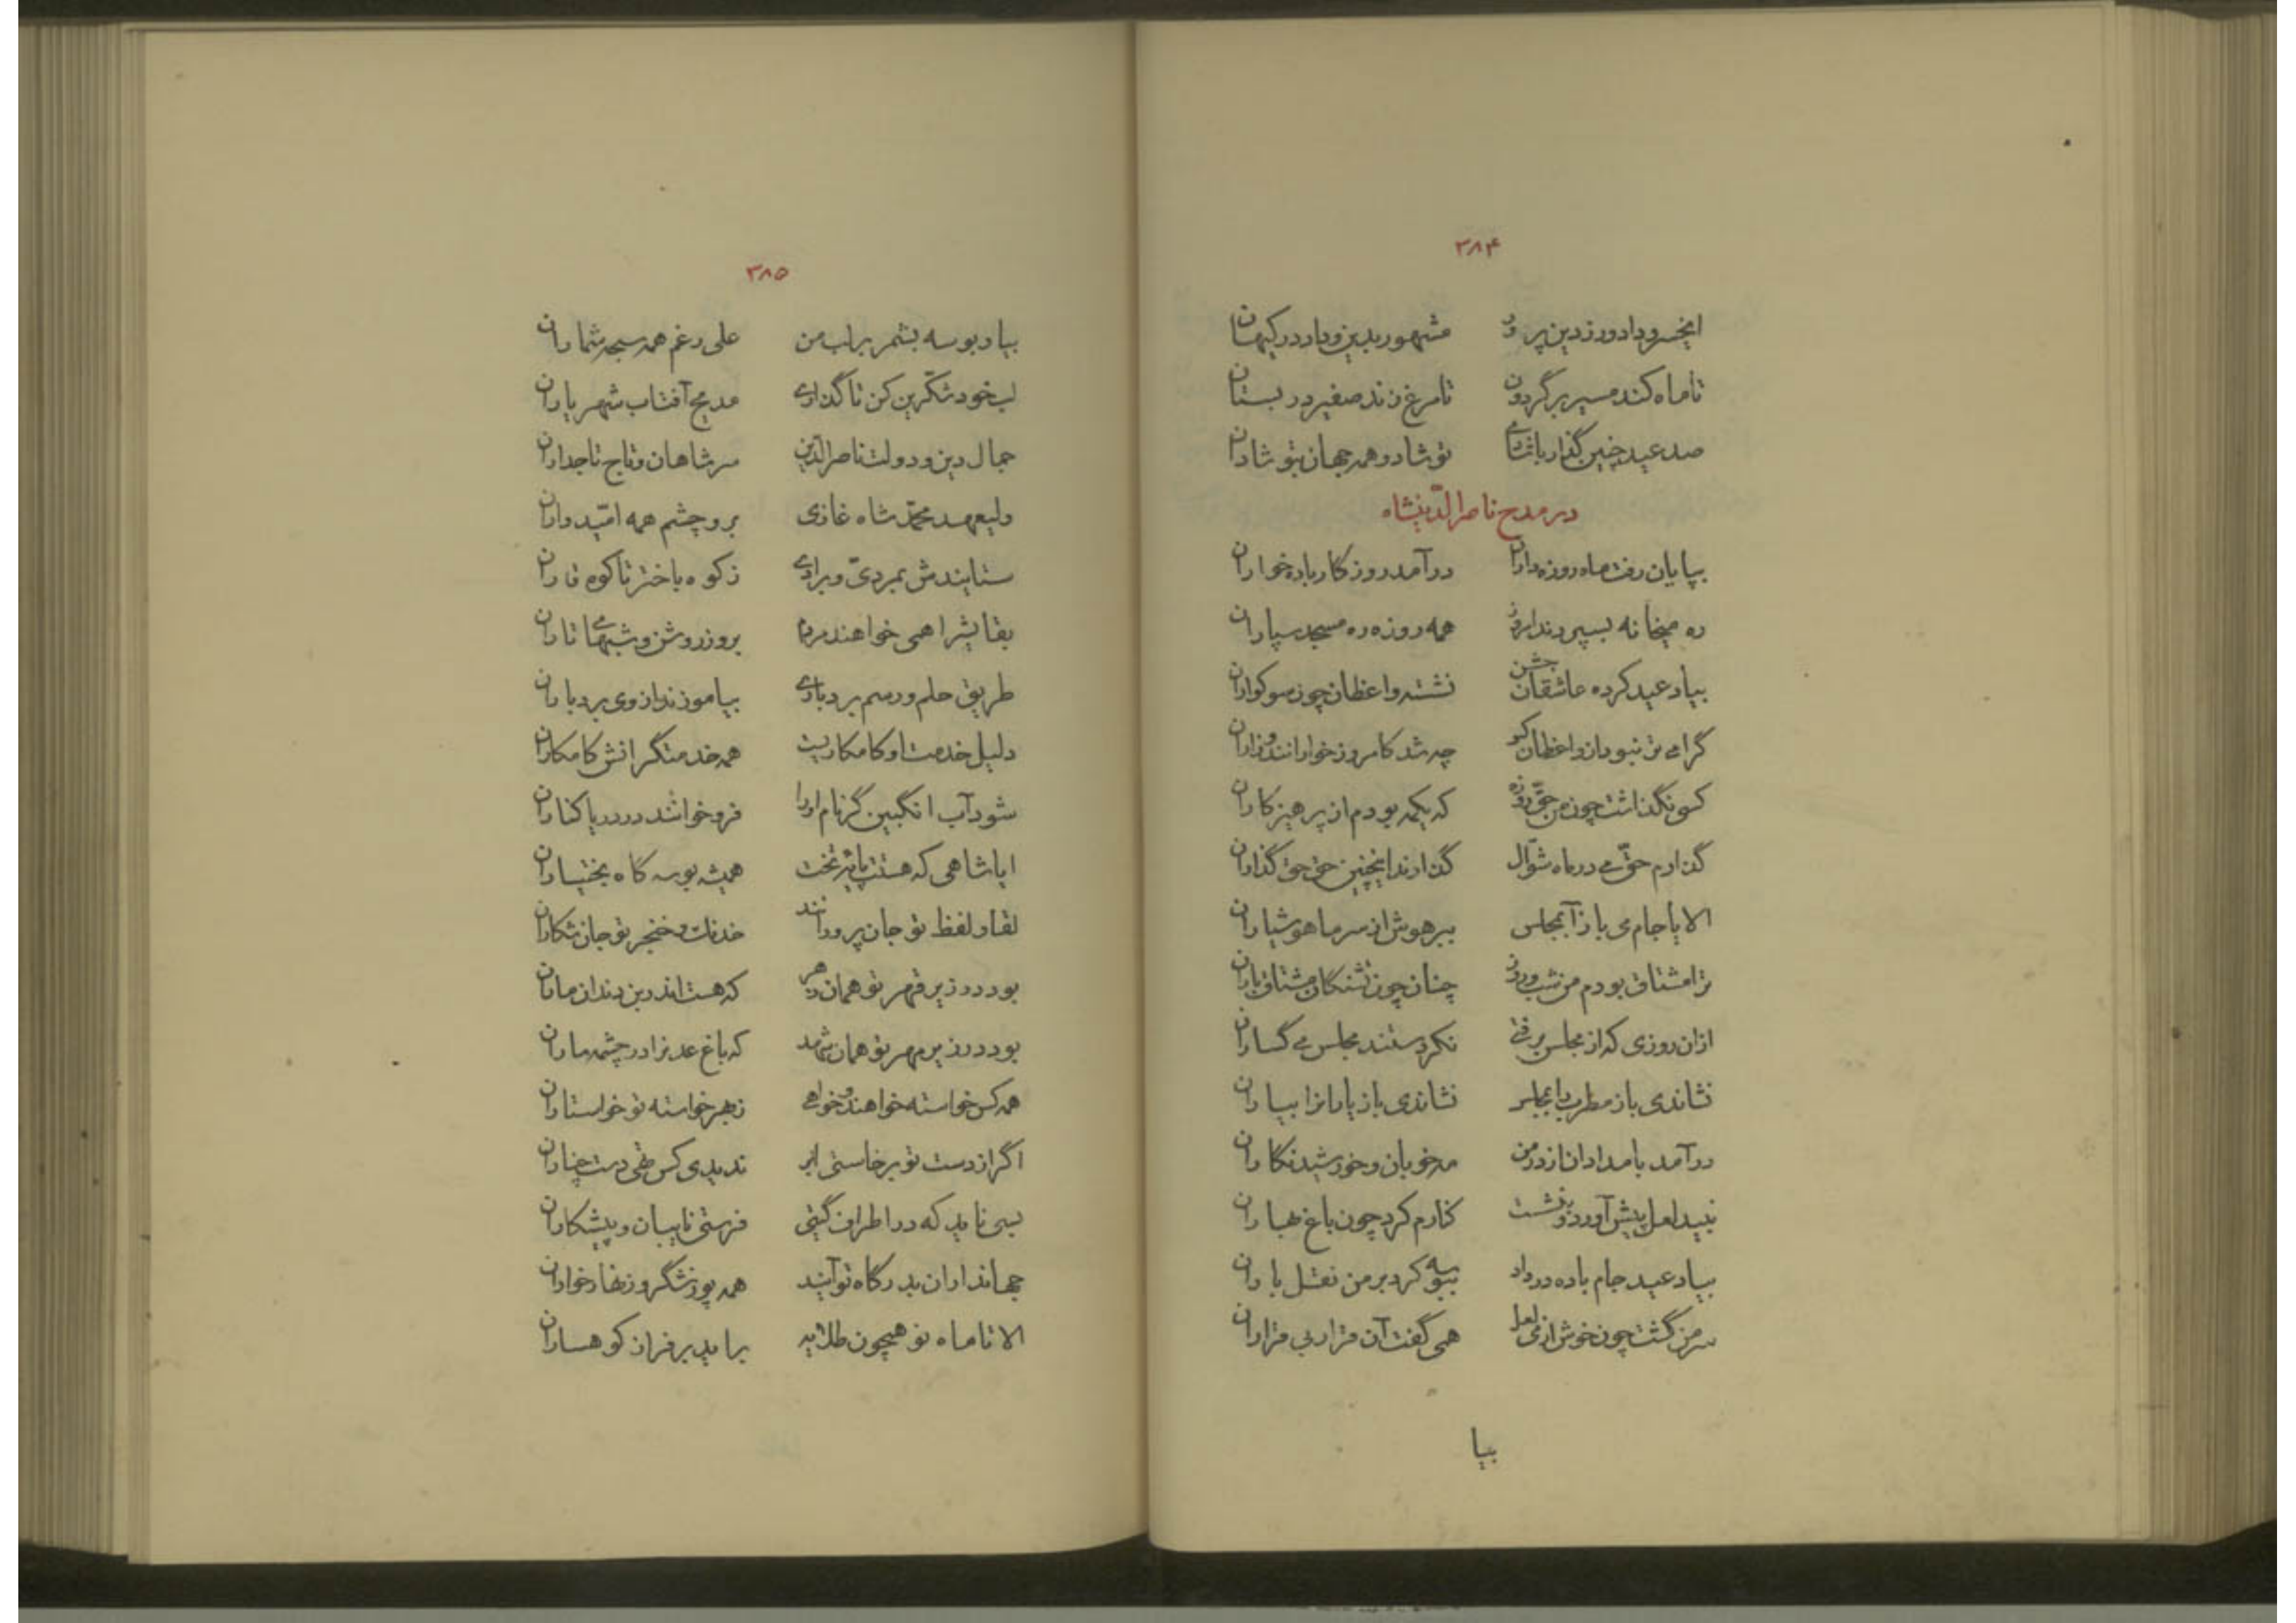 ۳۸۴
ایخسرو دادورز دین پرور مشهور بدین و داد در کیهان
تا ماه کند مسیر بر گردون تا مرغ زند صفیر در بستان
صد عید چنین گذار با شادی تو شاد و همه جهان بتو شادان
در مدح ناصرالدینشاه
بپایان رفت ماه روزه داران درآمد روزگار باده خواران
ره میخانه بسپردند امروز همه روزه ره مسجد سپاران
بیاد عید کرده عاشقان جشن نشسته واعظان چون سوکواران
گرامی تر نبود از واعظان کو چه شد کامروز خوارانند و زاران
کسی نگذاشت چون من حق روزه که یکمه بودم از پرهیزکاران
گذارم حق می در ماه شوال گذارند اینچنین حق حق گذاران
الا یا جام می باز آ بمجلس ببر هوش از سر ما هوشیاران
ترا مشتاق بودم من شب و روز چنان چون تشنگان مشتاق باران
ازان روزی که از مجلس برفتی نکردستند مجلس می گساران
نشاندی باز مطرب را بمجلس نشاندی باز یارانرا بیاران
درآمد بامدادان از در من مه خوبان و خورشید نگاران
نبید لعل پیش آورد و بنشست کنارم کرد چون باغ بهاران
بیاد عید جام باده در داد ببوسه کرد بر من نقل باران
سر من گشت چون خوش از می لعل همی گفت آن قرار بی قراران
بیا
۳۸۵
بیا و بوسه بشمر بر لب من علی رغم همه سبحه شماران
لب خود شکرین کن تا گذاری مدیح آفتاب شهریاران
جمال دین و دولت ناصرالدین سر شاهان و تاج تاجداران
ولیعهد محمد شاه غازی بر و چشم همه امیدواران
ستایندش بمردی و برادی ز کوه باختر تا کوه قاران
بقایش را همی خواهند مردم بروز روشن و شبهای تاران
طریق حلم و رسم بردباری بیاموزند از وی بردباران
دلیل خدمت او کامکاریست همه خدمتگرانش کامکاران
شود آب انگبین گر نام او را فرو خوانند در دریا کناران
ایا شاهی که هستت پایه تخت همیشه بوسه گاه بختیاران
لقا و لفظ تو جان پرورانند خدنگ و خنجر تو جان شکاران
بود در زیر قهر تو همان زهر که هست اندر بن دندان ماران
بود در زیر مهر تو همان شهد که باغ عدن را در چشمه ساران
همه کس خواسته خواهند و خواهی ز بهر خواسته تو خواستاران
اگر از دست تو برخاستی ابر ندیدی کس تهی دست چناران
بسی ناید که در اطراف گیتی فرستی نایبان و پیشکاران
جهانداران بدرگاه تو آیند همه پوزشگر و زنهار خواران
الا تا ماه نو همچون طلایه براید بر فراز کوهساران